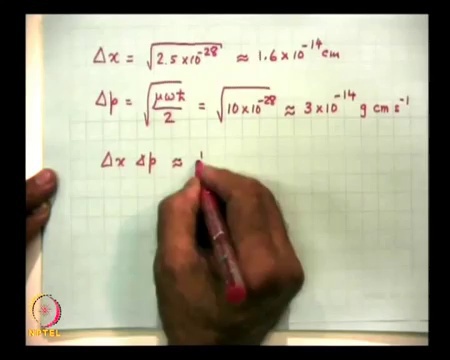 Δx = √2.5×10⁻²⁸ ≈ 1.6×10⁻¹⁴ cm
Δp = √μωħ/2 = √10×10⁻²⁸ ≈ 3×10⁻¹⁴ g cm s⁻¹
Δx Δp ≈
NPTEL